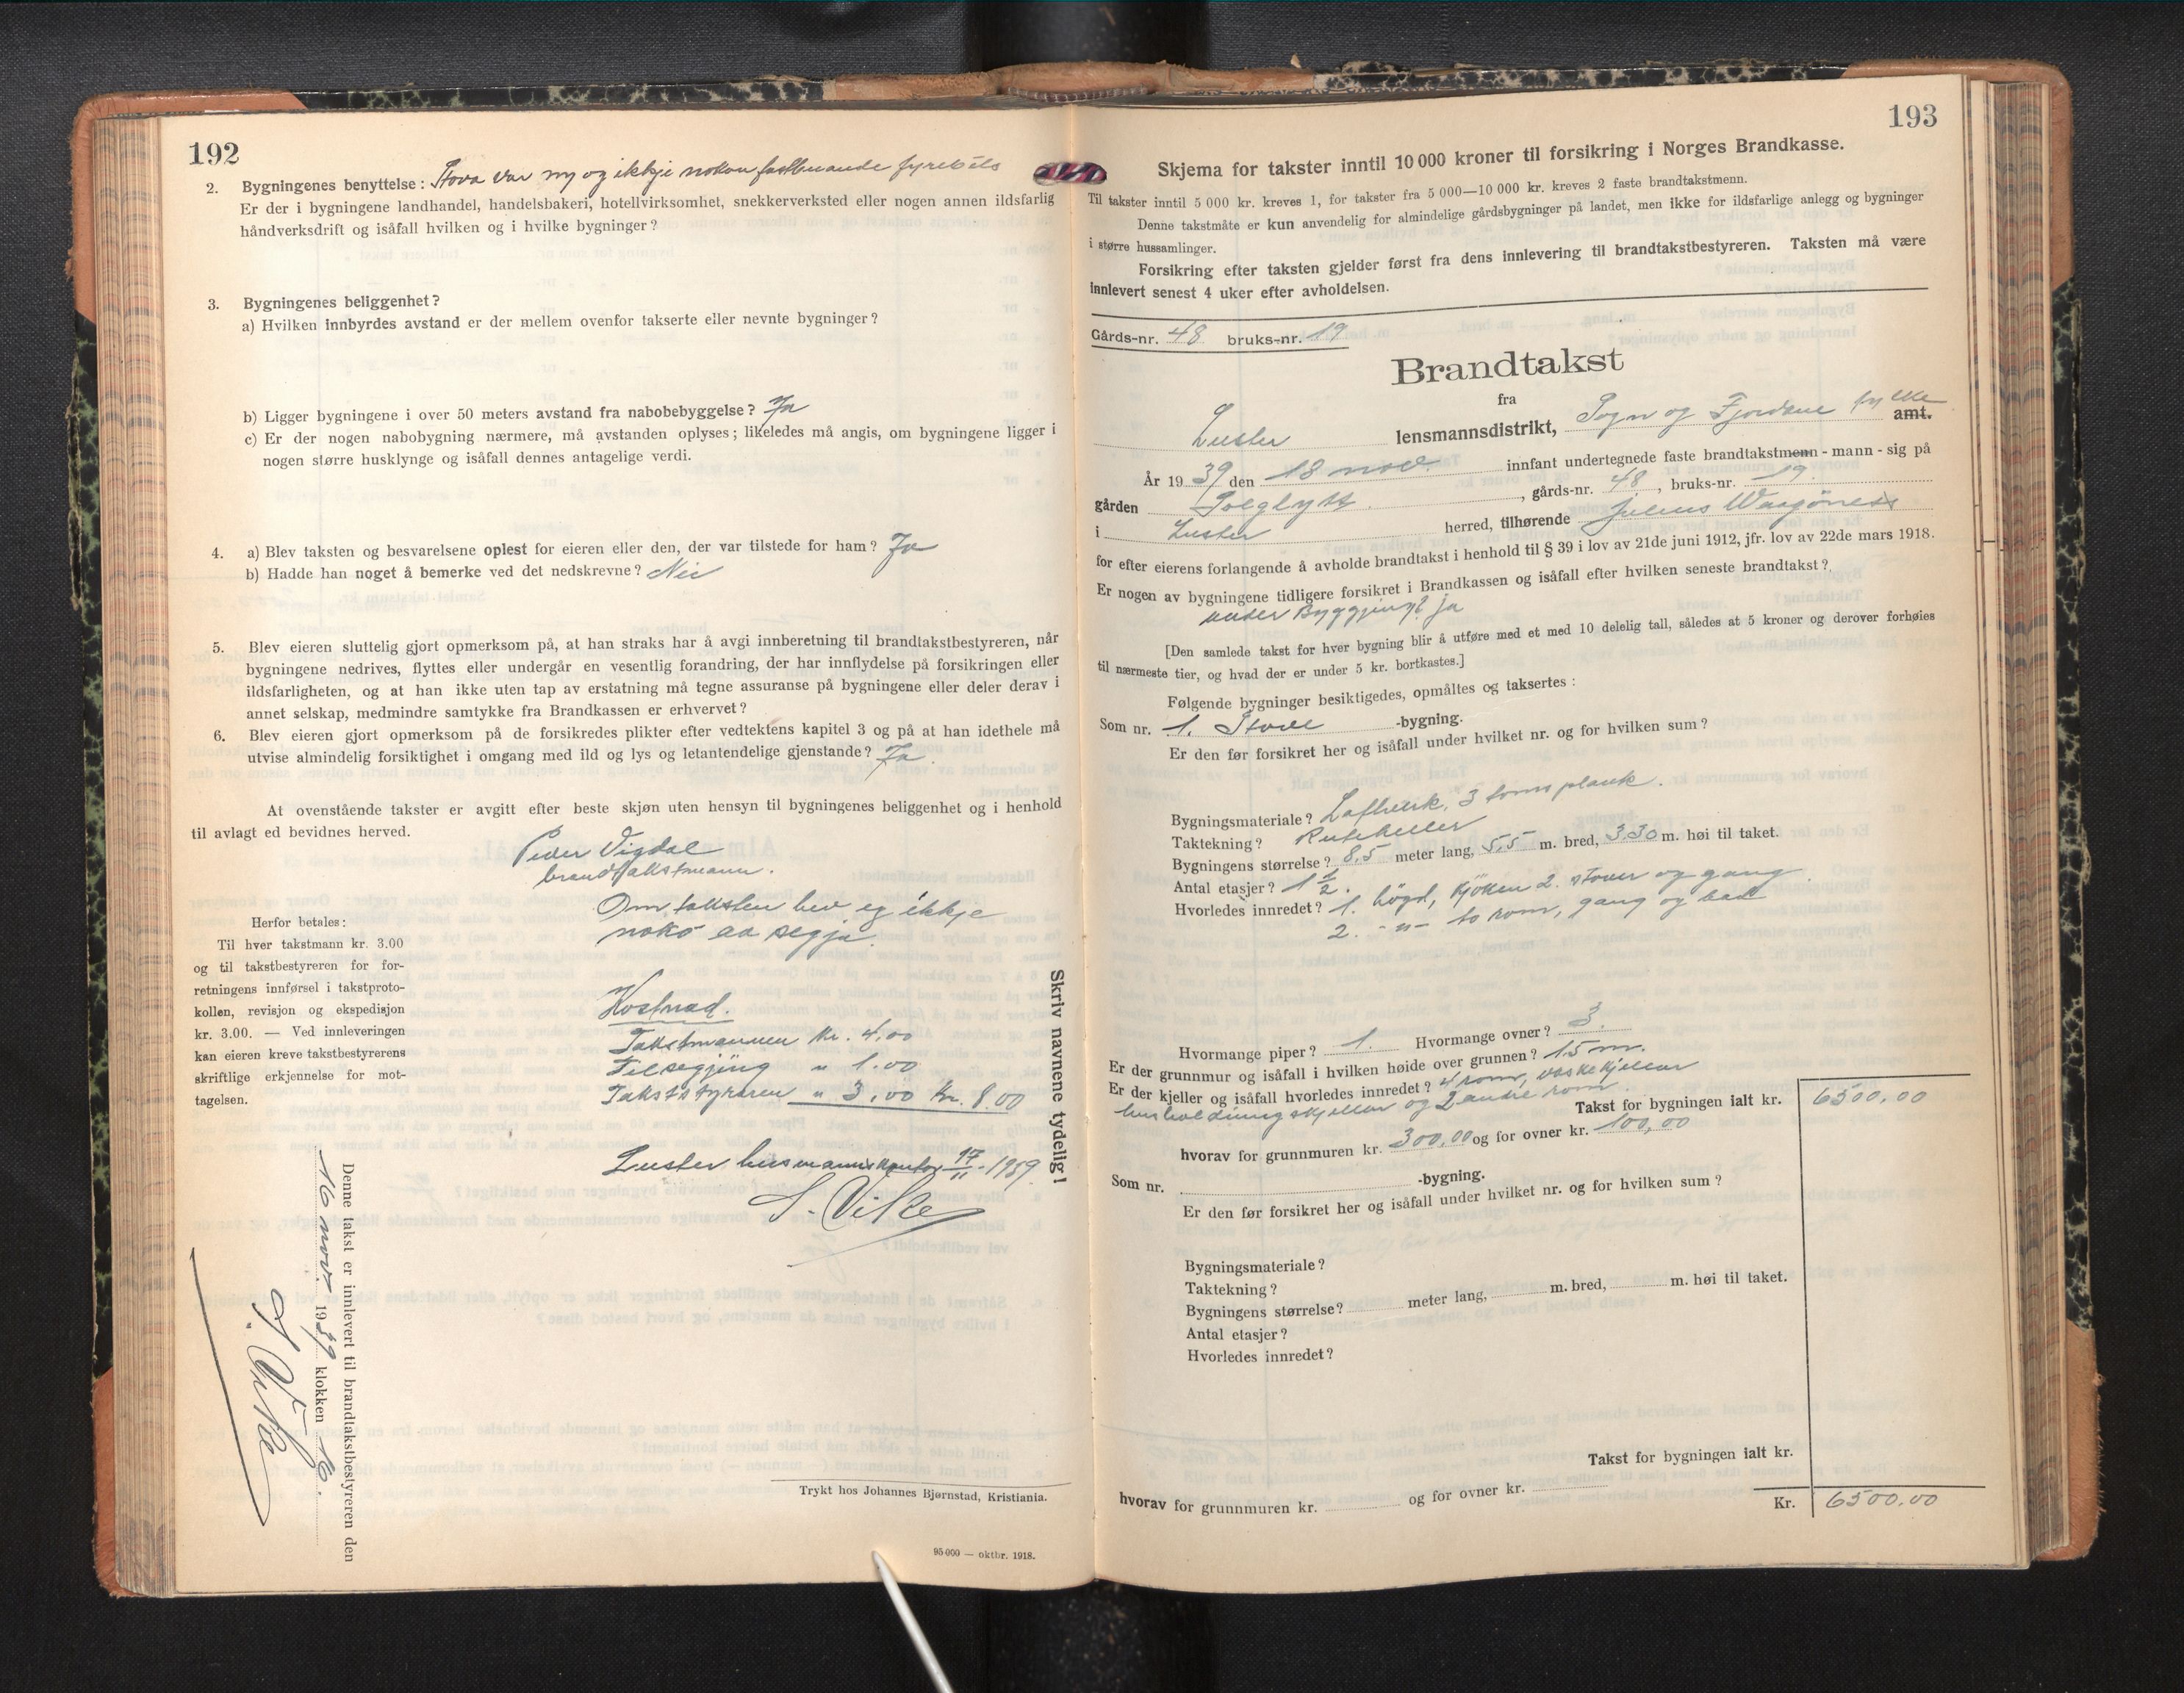 192
2. Bygningenes benyttelse: Stova var ny og ikkje nokon fastbuande fyrebils
Er der i bygningene landhandel, handelsbakeri, hotellvirksomhet, snekkerverksted eller nogen annen ildsfarlig
håndverksdrift og isåfall hvilken og i hvilke bygninger?
3. Bygningenes beliggenhet?
a) Hvilken innbyrdes avstand er der mellem ovenfor takserte eller nevnte bygninger?
b) Ligger bygningene i over 50 meters avstand fra nabobebyggelse? Ja
c) Er der nogen nabobygning nærmere, må avstanden oplyses; likeledes må angis, om bygningene ligger i
nogen større husklynge og isåfall dennes antagelige verdi.
4. a) Blev taksten og besvarelsene oplest for eieren eller den, der var tilstede for ham? Ja
b) Hadde han noget å bemerke ved det nedskrevne? Nei
5. Blev eieren sluttelig gjort opmerksom på, at han straks har å avgi innberetning til brandtakstbestyreren, når
bygningene nedrives, flyttes eller undergår en vesentlig forandring, der har innflydelse på forsikringen eller
ildsfarligheten, og at han ikke uten tap av erstatning må tegne assuranse på bygningene eller deler derav i
annet selskap, medmindre samtykke fra Brandkassen er erhvervet?
6. Blev eieren gjort opmerksom på de forsikredes plikter efter vedtektens kapitel 3 og på at han idethele må
utvise almindelig forsiktighet i omgang med ild og lys og letantendelige gjenstande? Ja.
At ovenstående takster er avgitt efter beste skjøn uten hensyn til bygningenes beliggenhet og i henhold
til avlagt ed bevidnes herved.
Peder Vigdal
brandtakstmann.
Om taksten hev eg ikkje
noko aa segja.
Herfor betales:
Til hver takstmann kr. 3.00
og til takstbestyreren for for-
retningens innførsel i takstproto-
kollen, revisjon og ekspedisjon
kr. 3.00. — Ved innleveringen
kan eieren kreve takstbestyrerens
skriftlige erkjennelse for mot-
tagelsen.
Kostnad.
Takstmannen kr. 4,00
Tilsegjing " 1.00
Takststyraren " 3,00 Kr. 8.00
Luster lensmannskontor 17/11-1939
S. Vike
Skriv navnene tydelig!
Denne takst er innlevert til brandtakstbestyreren den
16 nov. 1939 klokken 16.
S. Vike
Trykt hos Johannes Bjørnstad, Kristiania.
95 000 — oktbr. 1918.
193
Skjema for takster inntil 10 000 kroner til forsikring i Norges Brandkasse.
Til takster inntil 5 000 kr. kreves 1, for takster fra 5 000—10 000 kr. kreves 2 faste brandtakstmenn.
Denne takstmåte er kun anvendelig for almindelige gårdsbygninger på landet, men ikke for ildsfarlige anlegg og bygninger
i større hussamlinger.
Forsikring efter taksten gjelder først fra dens innlevering til brandtakstbestyreren. Taksten må være
innlevert senest 4 uker efter avholdelsen.
Gårds-nr. 48 bruks-nr. 19
Brandtakst
fra
Luster lensmannsdistrikt, Sogn og Fjordane fylke amt.
År 1939 den 18 nov. innfant undertegnede faste brandtakstmenn - mann - sig på
gården Solglytt, gårds-nr. 48, bruks-nr. 19.
i Luster herred, tilhørende Julius
for efter eierens forlangende å avholde brandtakst i henhold til § 39 i lov av 21de juni 1912, jfr. lov av 22de mars 1918.
Er nogen av bygningene tidligere forsikret i Brandkassen og isåfall efter hvilken seneste brandtakst?
under Byggjing? ja
[Den samlede takst for hver bygning blir å utføre med et med 10 delelig tall, således at 5 kroner og derover forhøies
til nærmeste tier, og hvad der er under 5 kr. bortkastes.]
Følgende bygninger besiktigedes, opmåltes og taksertes:
Som nr. 1. Stove -bygning.
Er den før forsikret her og isåfall under hvilket nr. og for hvilken sum?
Bygningsmateriale? Laftverk, 3 toms plank.
Taktekning? Ruteheller
Bygningens størrelse? 8,5 meter lang, 5,5 m. bred, 3.30 m. høi til taket.
Antal etasjer? 1 1/2.
Hvorledes innredet? 1. høgd, kjøken 2. stover og gang.
2. -"- to rom, gang og bad
Hvormange piper? 1. Hvormange ovner? 3.
Er der grunnmur og isåfall i hvilken høide over grunnen? 1.5 m.
Er der kjeller og isåfall hvorledes innredet? 4 rom, vaskekjellar
husholdningskjellar og 2 andre rom.
Takst for bygningen ialt kr. 6500,00
hvorav for grunnmuren kr. 300,00 og for ovner kr. 100,00
Som nr. -bygning.
Er den før forsikret her og isåfall under hvilket nr. og for hvilken sum?
Bygningsmateriale?
Taktekning?
Bygningens størrelse? meter lang, m. bred, m. høi til taket.
Antal etasjer?
Hvorledes innredet?
Takst for bygningen ialt kr.
hvorav for grunnmuren kr. og for ovner kr.
Kr. 6500.00